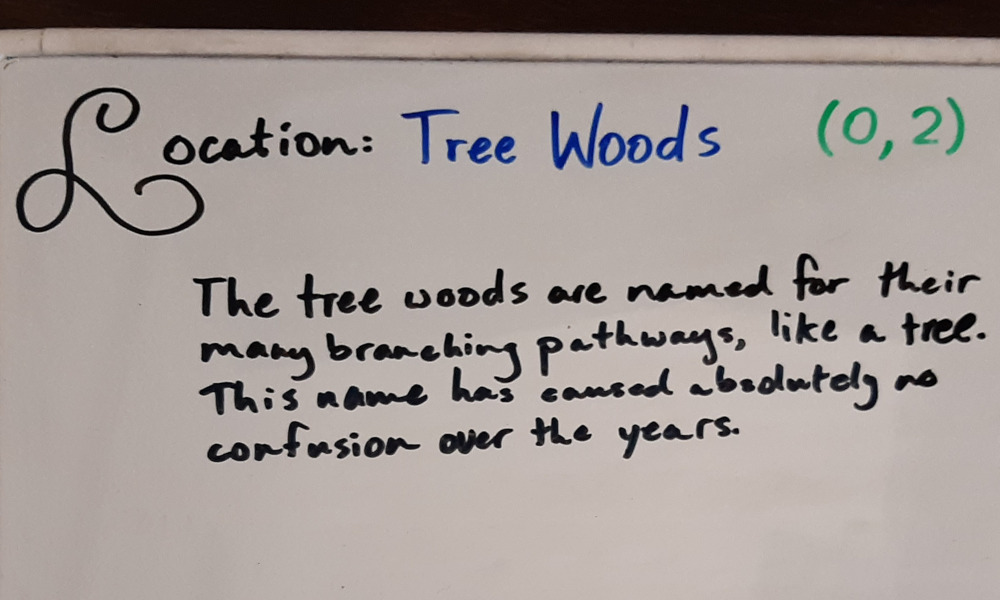 Location: Tree Woods (0, 2)
The tree woods are named for their
many branching pathways, like a tree.
This name has caused absolutely no
confusion over the years.